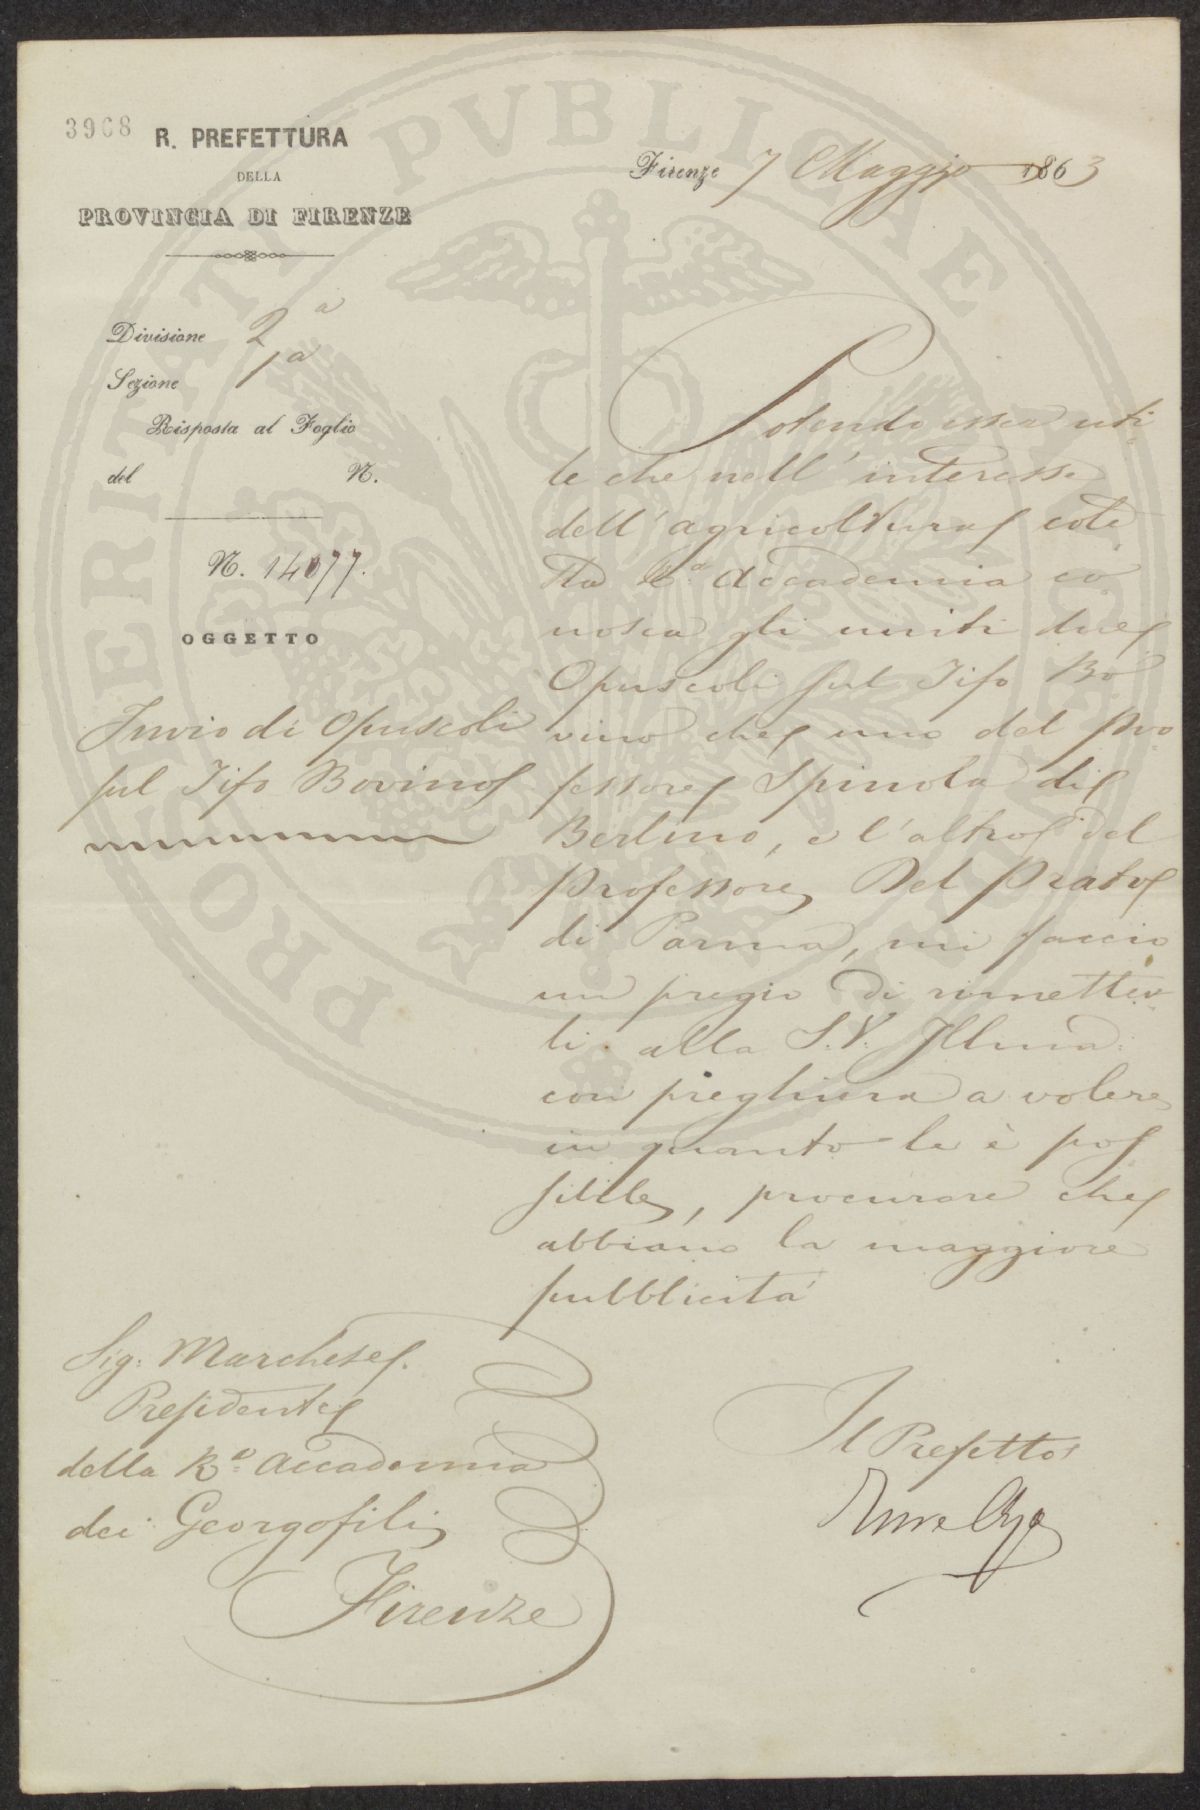 3968
R. PREFETTURA
DELLA
PROVINCIA DI FIRENZE
Firenze 7 Maggio 1863
Divisione 2a
Sezione 1a
Risposta al Foglio
del N.
N. 14077.
OGGETTO
Invio di Opuscoli
sul Tifo Bovino
Potendo esser uti
le che nell' interesse
dell' agricoltura cote
sta R.a Accademia co
nosca gli uniti due
Opuscoli sul Tifo Bo
vino che uno del Pro
fessore Spinola di
Berlino, e l'altro del
Professore Del Prato
di Parma, mi faccio
un pregio di rimetter
li alla S.V. Illma
con preghiera a volere
in quanto le è pos
sibile, procurare che
abbiano la maggiore
pubblicità
Sig: Marchese
Presidente
della R.a Accademia
dei Georgofili
Firenze
Il Prefetto
PROSPERITATI PUBLICAE AUGENDAE